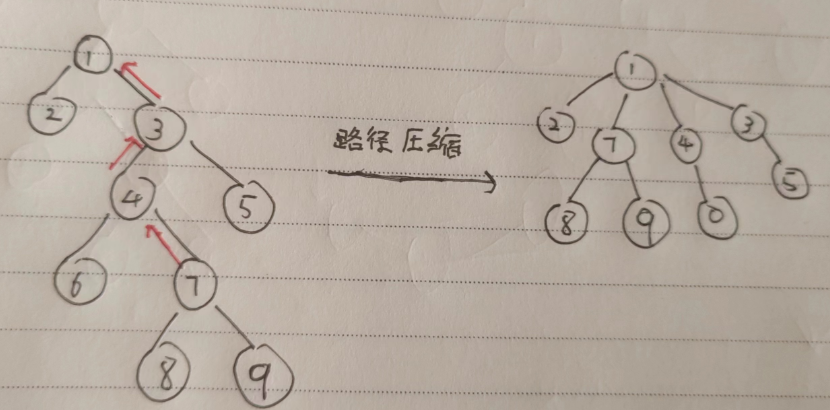 1
2 3
4 5
6 7
8 9
路径压缩
1
2 7 4 3
8 9 0 5